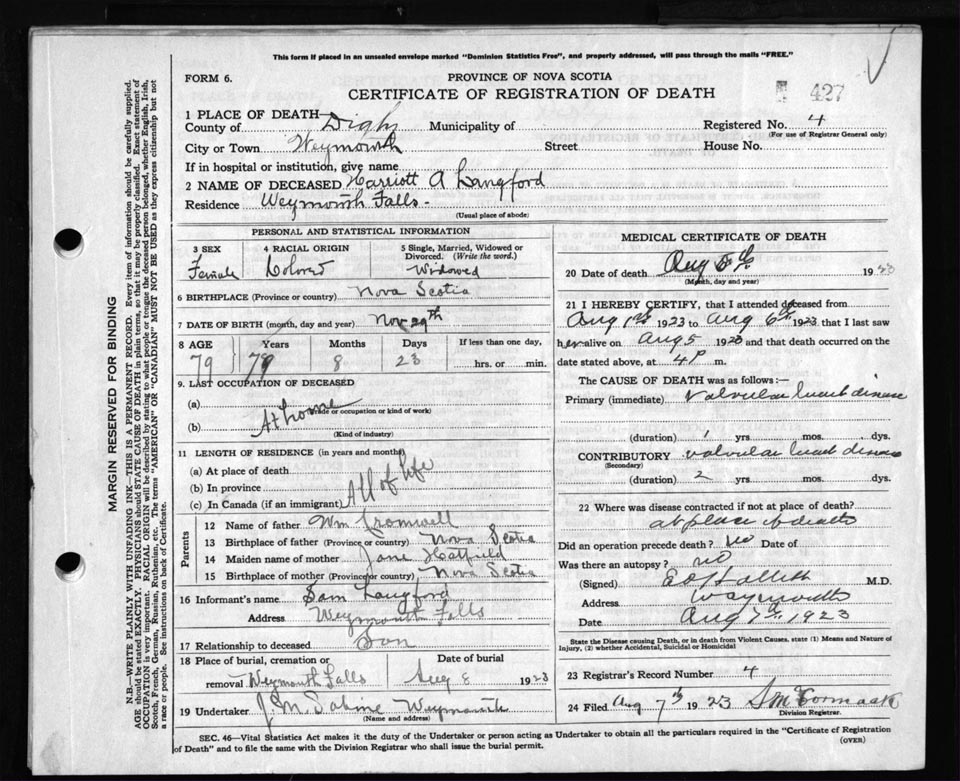 This form if placed in an unsealed envelope marked "Dominion Statistics Free", and properly addressed, will pass through the mails "FREE."
FORM 6.
PROVINCE OF NOVA SCOTIA
CERTIFICATE OF REGISTRATION OF DEATH
427
1 PLACE OF DEATH
County of Digby Municipality of Registered No. 4
(For use of Registrar General only)
City or Town Weymouth Street House No.
If in hospital or institution, give name
2 NAME OF DECEASED Harriott A Langford
Residence Weymouth Falls -
(Usual place of abode)
MARGIN RESERVED FOR BINDING
N.B.—WRITE PLAINLY WITH UNFADING INK—THIS IS A PERMANENT RECORD. Every item of information should be carefully supplied.
AGE should be stated EXACTLY. PHYSICIANS should STATE CAUSE OF DEATH in plain terms, so that it may be properly classified. Exact statement of
OCCUPATION is very important. RACIAL ORIGIN will be described by stating to what people or tongue the deceased person belonged, whether English, Irish,
Scotch, French, German, Russian, Ruthenian, etc. The terms "AMERICAN" OR "CANADIAN" MUST NOT BE USED as they express citizenship but not
a race or people. See instructions on back of Certificate.
PERSONAL AND STATISTICAL INFORMATION
3 SEX 4 RACIAL ORIGIN 5 Single, Married, Widowed or Divorced. (Write the word.)
Female Colored Widowed
6 BIRTHPLACE (Province or country) Nova Scotia
7 DATE OF BIRTH (month, day and year) Nov 29th
8 AGE Years Months Days If less than one day,
79 79 8 23 hrs. or min.
9. LAST OCCUPATION OF DECEASED
(a) At home
(Trade or occupation or kind of work)
(b)
(Kind of industry)
11 LENGTH OF RESIDENCE (in years and months)
(a) At place of death
(b) In province All of life
(c) In Canada (if an immigrant)
Parents
12 Name of father Wm Cromwell
13 Birthplace of father (Province or country) Nova Scotia
14 Maiden name of mother Jane Hatfield
15 Birthplace of mother (Province or country) Nova Scotia
16 Informant's name Sam Langford
Address Weymouth Falls
17 Relationship to deceased Son
18 Place of burial, cremation or removal Weymouth Falls
Date of burial Aug 8 1923
19 Undertaker J. M. Sabine Weymouth
(Name and address)
MEDICAL CERTIFICATE OF DEATH
20 Date of death Aug 1923
(Month, day and year)
21 I HEREBY CERTIFY, that I attended deceased from
Aug 1st 1923 to Aug 6th 1923 that I last saw
her alive on Aug 5 1923 and that death occurred on the
date stated above, at 4 P m.
The CAUSE OF DEATH was as follows:—
Primary (immediate) Valvular heart disease
(duration) 1 yrs. mos. dys.
CONTRIBUTORY valvular heart disease
(Secondary)
(duration) 2 yrs. mos. dys.
22 Where was disease contracted if not at place of death?
at place of death
Did an operation precede death? no Date of
Was there an autopsy? no
(Signed) M.D.
Address Weymouth
Date Aug 7th 1923
State the Disease causing Death, or in death from Violent Causes, state (1) Means and Nature of
Injury, (2) whether Accidental, Suicidal or Homicidal
23 Registrar's Record Number 4
24 Filed Aug 7th 1923 S McCormack
Division Registrar.
SEC. 46—Vital Statistics Act makes it the duty of the Undertaker or person acting as Undertaker to obtain all the particulars required in the "Certificate of Registration
of Death" and to file the same with the Division Registrar who shall issue the burial permit.
(OVER)